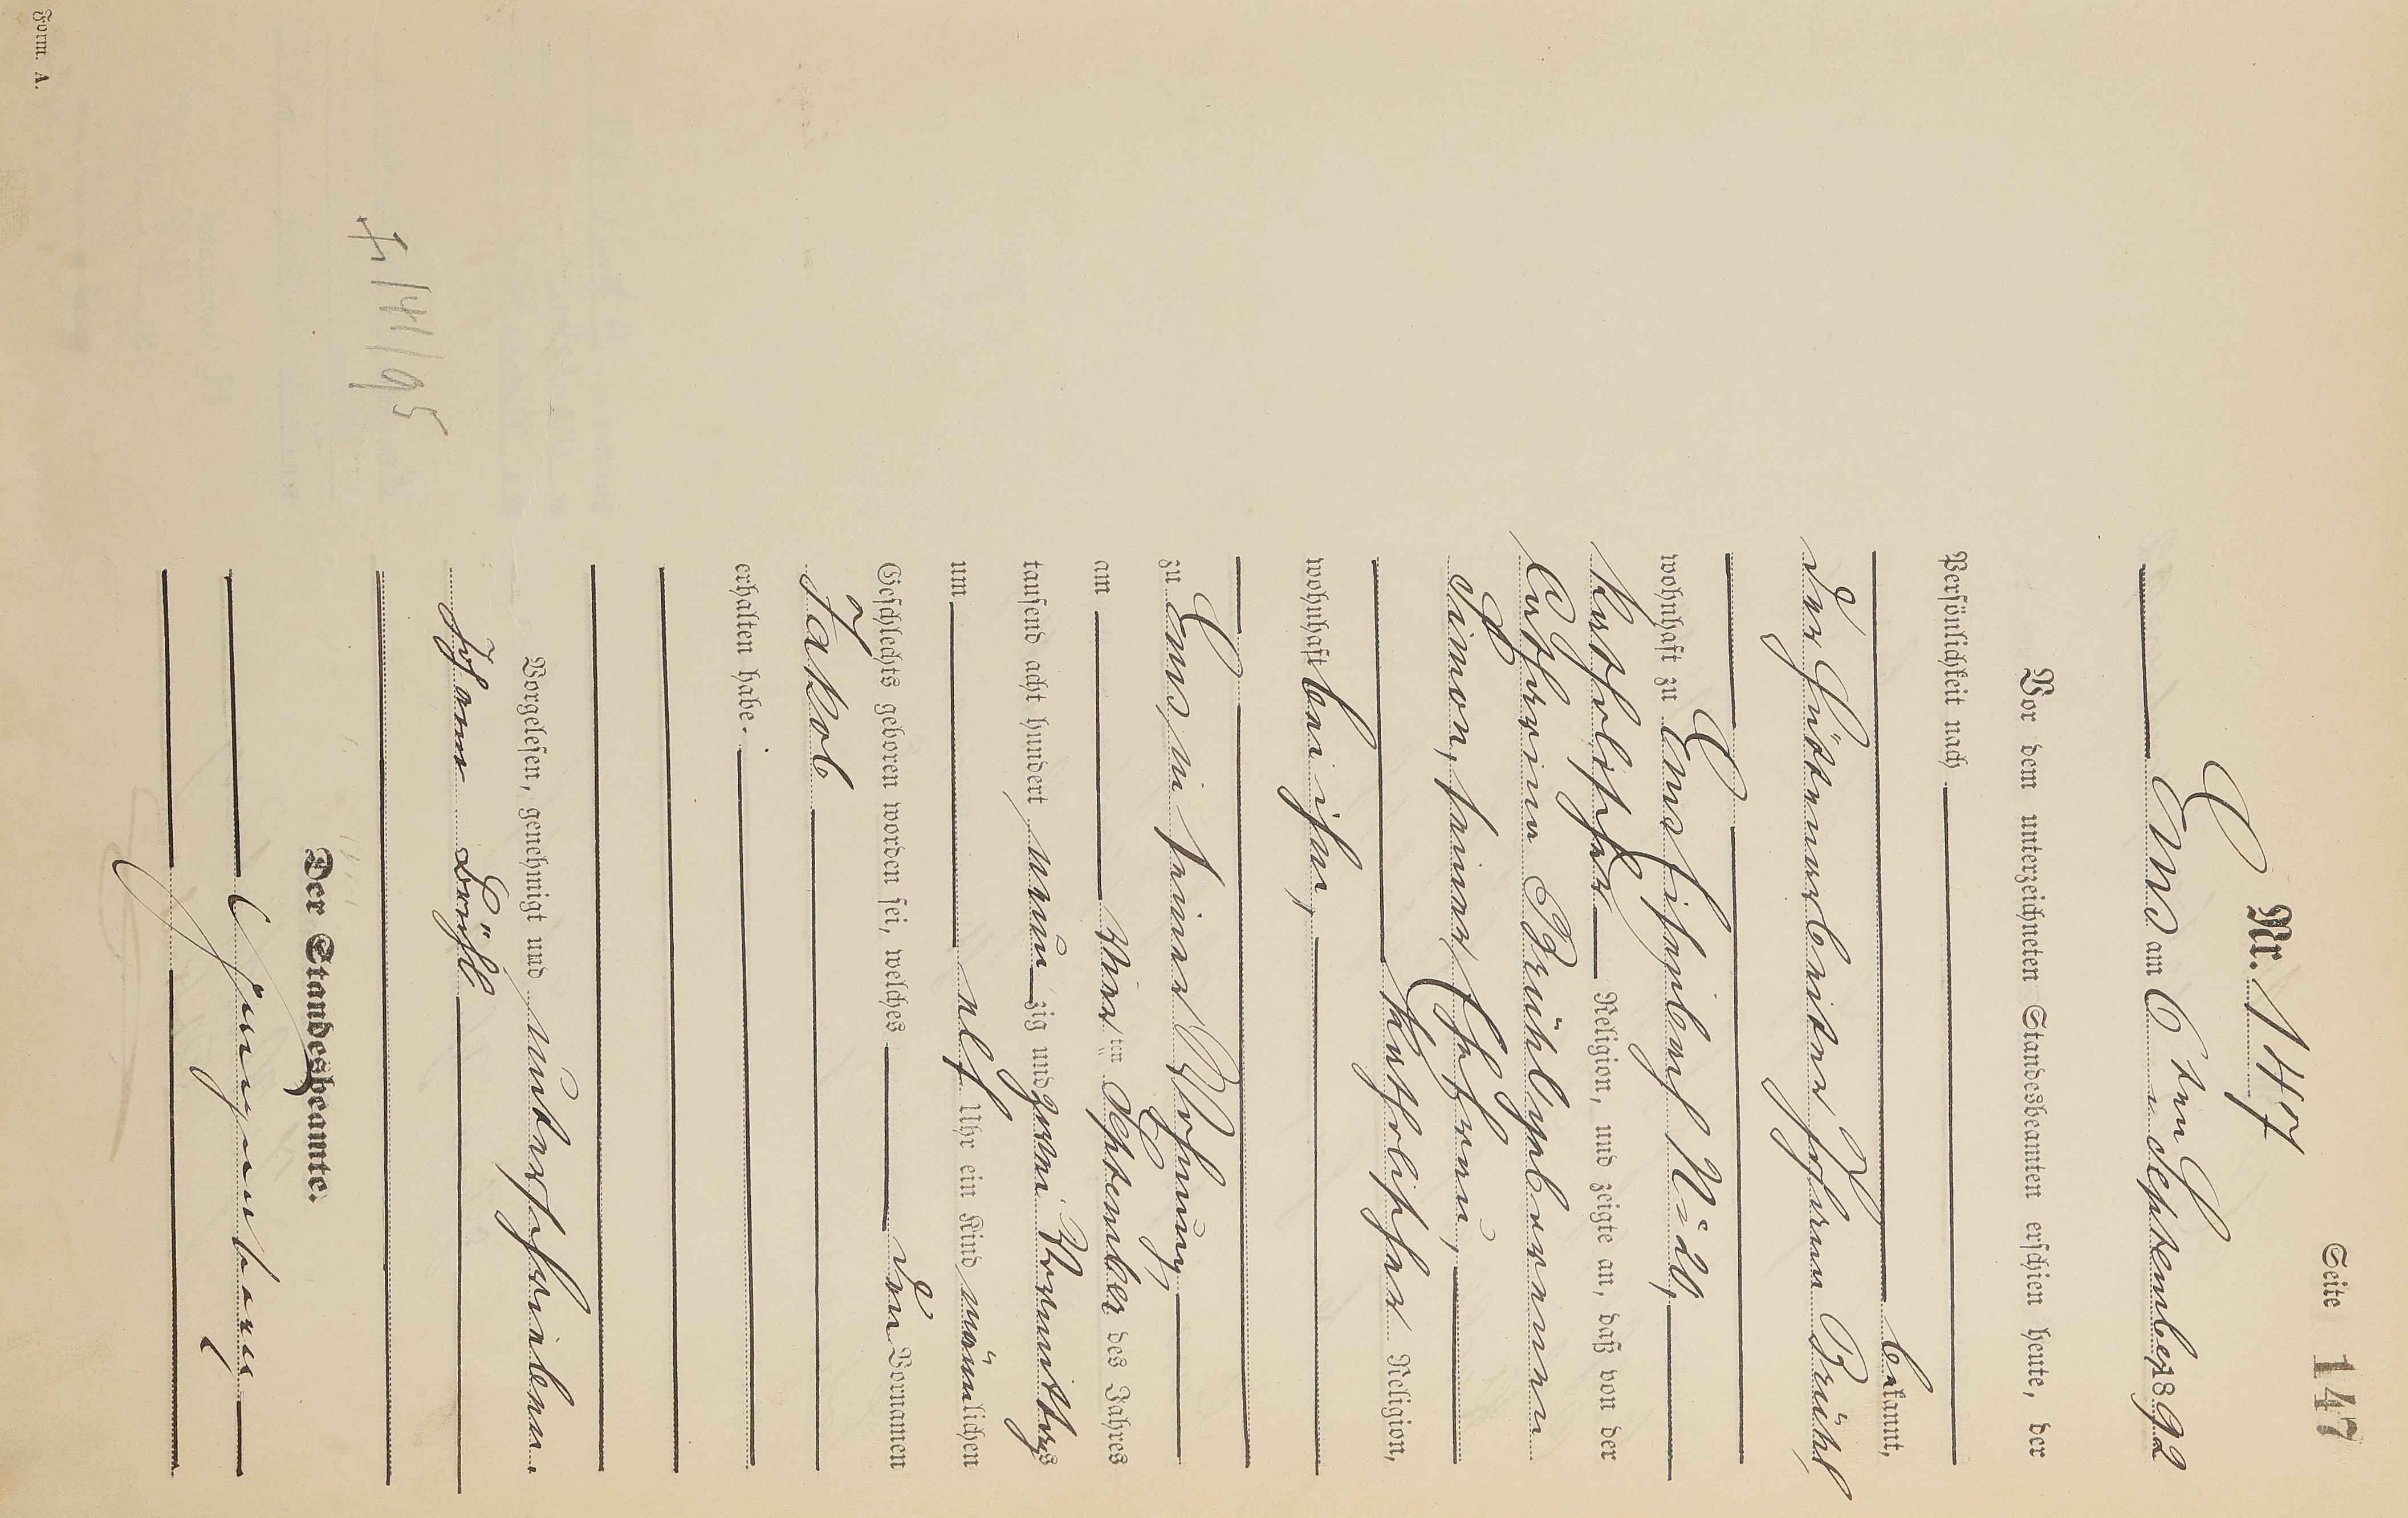 Seite 147
Nr. 147
Ems am 6ten September 1892
Vor dem unterzeichneten Standesbeamten erschien heute, der
Persönlichkeit nach
bekannt,
der Hüttenarbeiter Johann Brühl,
wohnhaft zu Ems
katholischer Religion, und zeigte an, daß von der
Cathrina Brühl geborenen
Simon, seiner Ehefrau,
katholischer Religion,
wohnhaft bei ihm,
zu Ems, in seiner Wohnung,
am vierten September des Jahres
tausend acht hundert neunzig und zwei Vormittags
um elf Uhr ein Kind männlichen
Geschlechts geboren worden sei, welches den Vornamen
Jakob
erhalten habe.
Vorgelesen, genehmigt und unterschrieben
Johann Brühl
Der Standesbeamte.
† 14/1/95
Form. A.